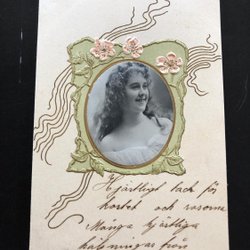 Hjärtligt tack för
kortet och rosorna
Många hjärtliga
hälsningar från